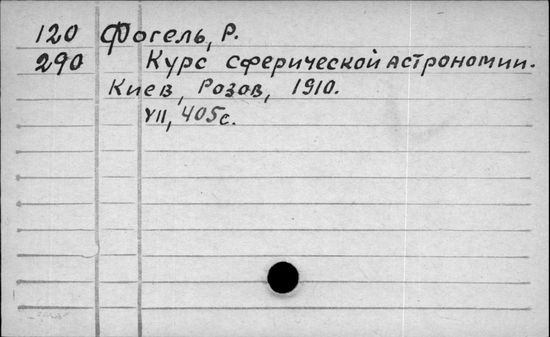 120 Фогель, Р.
290 Курс сферической астрономии.
Киев, Розов, 1910.
VII, 405с.